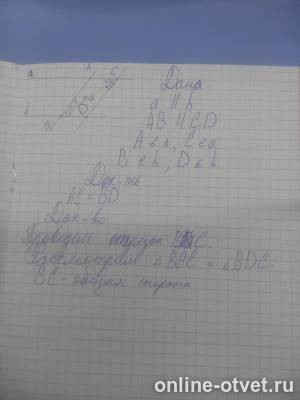 a
A
C
b
B
D
Дано
a || b
AB || CD
A ∈ a, C ∈ a
B ∈ b, D ∈ b
Док-ть
AC = BD
Док-во
Проведём отрезок BC.
Рассмотрим △ BAC и △ BDC:
BC - общая сторона
online-otvet.ru